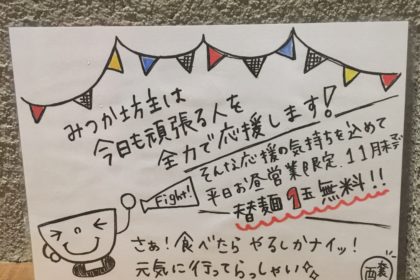 みつか坊主は
今日も頑張る人を
全力で応援します!
そんな応援の気持ちを込めて
平日お昼営業限定、11月末まで
替麺1玉無料!!
Fight!
さぁ!食べたら やるしかナイッ!
元気に行ってらっしゃい☆